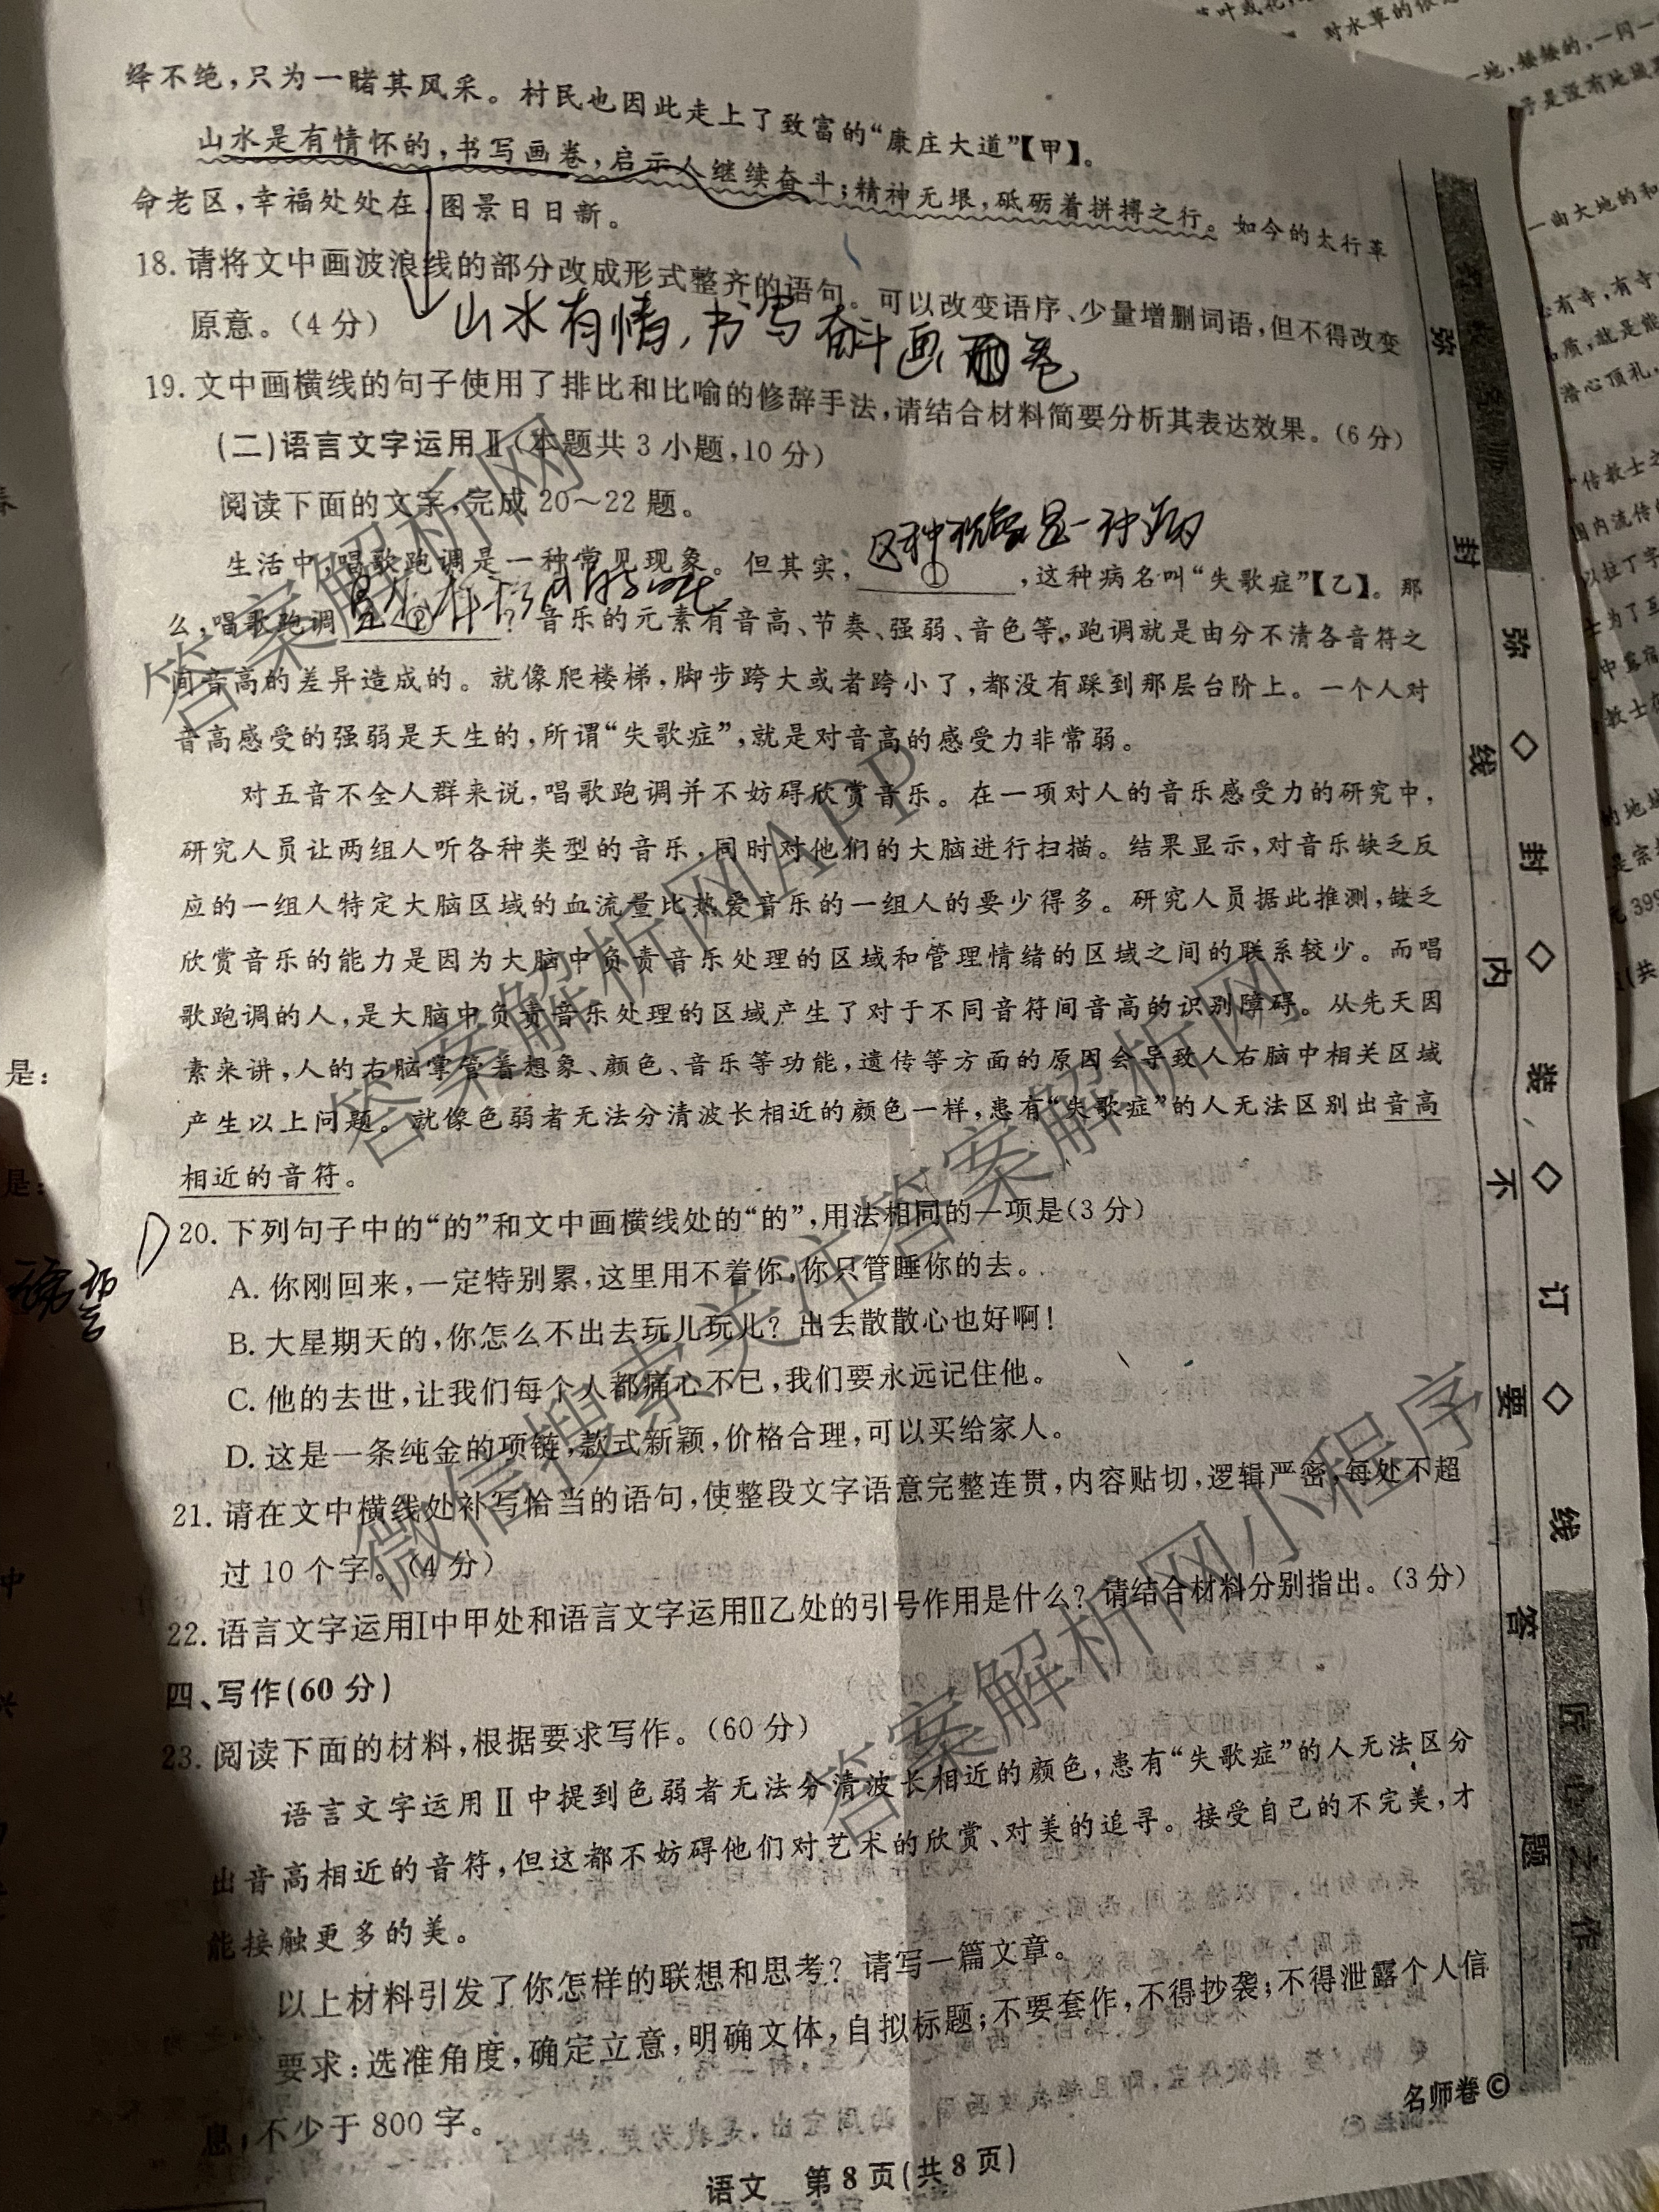 绎不绝，只为一睹其风采。村民也因此走上了致富的“康庄大道”【甲】。
山水是有情怀的，书写画卷，启示人继续奋斗；精神无垠，砥砺着拼搏之行。如今的太行革
命老区，幸福处处在，图景日日新。
18. 请将文中画波浪线的部分改成形式整齐的语句。可以改变语序、少量增删词语，但不得改变
原意。（4分）
山水有情，书写奋斗画卷
19. 文中画横线的句子使用了排比和比喻的修辞手法，请结合材料简要分析其表达效果。（6分）
（二）语言文字运用Ⅱ（本题共3小题，10分）
阅读下面的文字，完成20～22题。
这种现象是一种病
生活中，唱歌跑调是一种常见现象。但其实，①，这种病名叫“失歌症”【乙】。那
么，唱歌跑调②？音乐的元素有音高、节奏、强弱、音色等，跑调就是由分不清各音符之
间音高的差异造成的。就像爬楼梯，脚步跨大或者跨小了，都没有踩到那层台阶上。一个人对
音高感受的强弱是天生的，所谓“失歌症”，就是对音高的感受力非常弱。
对五音不全人群来说，唱歌跑调并不妨碍欣赏音乐。在一项对人的音乐感受力的研究中，
研究人员让两组人听各种类型的音乐，同时对他们的大脑进行扫描。结果显示，对音乐缺乏反
应的一组人特定大脑区域的血流量比热爱音乐的一组人的要少得多。研究人员据此推测，缺乏
欣赏音乐的能力是因为大脑中负责音乐处理的区域和管理情绪的区域之间的联系较少。而唱
歌跑调的人，是大脑中负责音乐处理的区域产生了对于不同音符间音高的识别障碍。从先天因
素来讲，人的右脑掌管着想象、颜色、音乐等功能，遗传等方面的原因会导致人右脑中相关区域
产生以上问题。就像色弱者无法分清波长相近的颜色一样，患有“失歌症”的人无法区别出音高
相近的音符。
D 20. 下列句子中的“的”和文中画横线处的“的”，用法相同的一项是（3分）
A. 你刚回来，一定特别累，这里用不着你，你只管睡你的去。
B. 大星期天的，你怎么不出去玩儿玩儿？出去散散心也好啊！
C. 他的去世，让我们每个人都痛心不已，我们要永远记住他。
D. 这是一条纯金的项链，款式新颖，价格合理，可以买给家人。
21. 请在文中横线处补写恰当的语句，使整段文字语意完整连贯，内容贴切，逻辑严密，每处不超
过10个字。（4分）
22. 语言文字运用Ⅰ中甲处和语言文字运用Ⅱ乙处的引号作用是什么？请结合材料分别指出。（3分）
四、写作（60分）
23. 阅读下面的材料，根据要求写作。（60分）
语言文字运用Ⅱ中提到色弱者无法分清波长相近的颜色，患有“失歌症”的人无法区分
出音高相近的音符，但这都不妨碍他们对艺术的欣赏、对美的追寻。接受自己的不完美，才
能接触更多的美。
以上材料引发了你怎样的联想和思考？请写一篇文章。
要求：选准角度，确定立意，明确文体，自拟标题；不要套作，不得抄袭；不得泄露个人信
息；不少于800字。
名师卷©
语文 第8页（共8页）
弥 封 线 内 不 要 答 题
弥◇封◇装◇订◇线
匠心之作
答案解析网
答案解析网APP
微信搜索关注答案解析网
答案解析网小程序